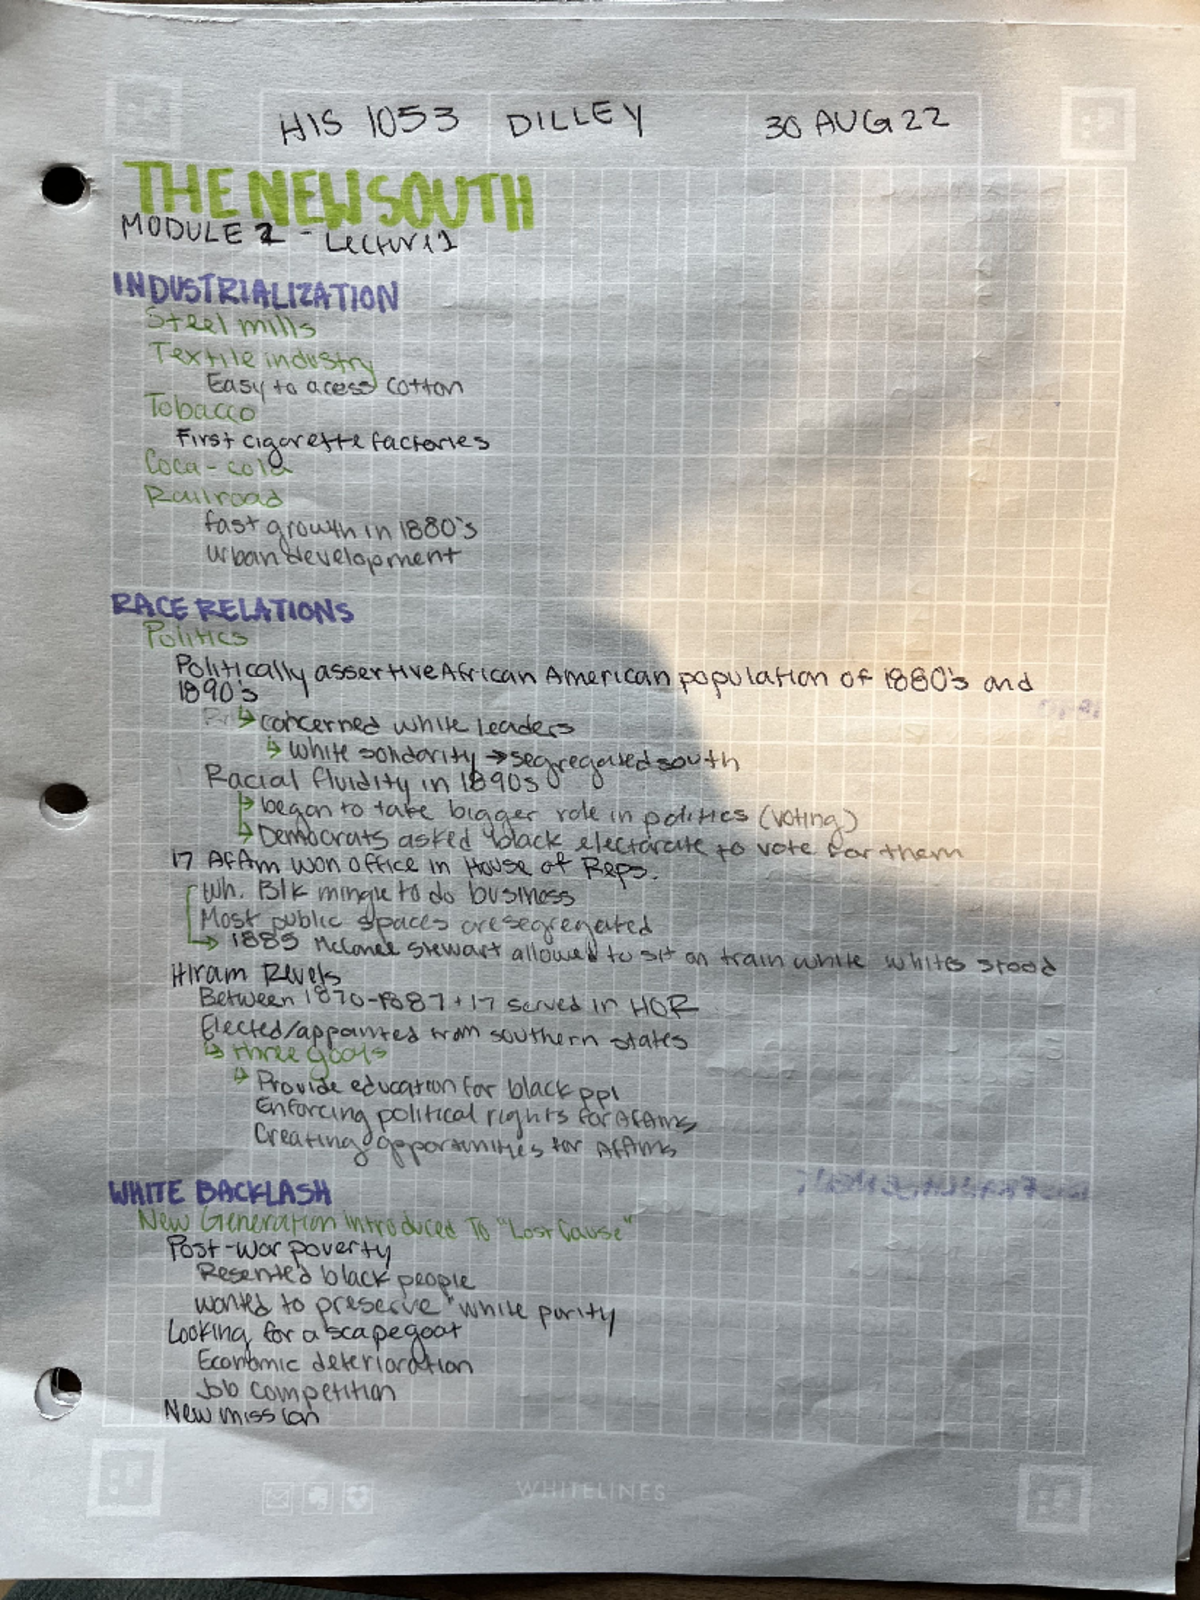 HIS 1053 DILLEY 30 AUG 22
THE NEW SOUTH
MODULE 2 - Lecture 1
INDUSTRIALIZATION
Steel mills
Textile industry
Easy to acess cotton
Tobacco
First cigarette factories
Coca-cola
Railroad
fast growth in 1880's
urban development
RACE RELATIONS
Politics
Politically assertive African American population of 1880's and
1890's
↳ concerned white leaders
↳ White solidarity → segregated south
Racial fluidity in 1890s
↳ began to take bigger role in politics (voting)
↳ Democrats asked black electorate to vote for them
17 AfAm won office in House of Reps.
Wh. Blk mingle to do business
Most public spaces are segregated
→ 1885 McCanee Stewart allowed to sit on train while whites stood
Hiram Revels
Between 1870-1887, 17 served in HOR
Elected/appointed from southern states
↳ three goals
↳ Provide education for black ppl
Enforcing political rights for AfAms
Creating opportunities for AfAms
WHITE BACKLASH
New Generation introduced To "Lost Cause"
Post-war poverty
Resented black people
wanted to preserve "white purity
Looking for a scapegoat
Economic deterioration
Job competition
New mission
WHITELINES